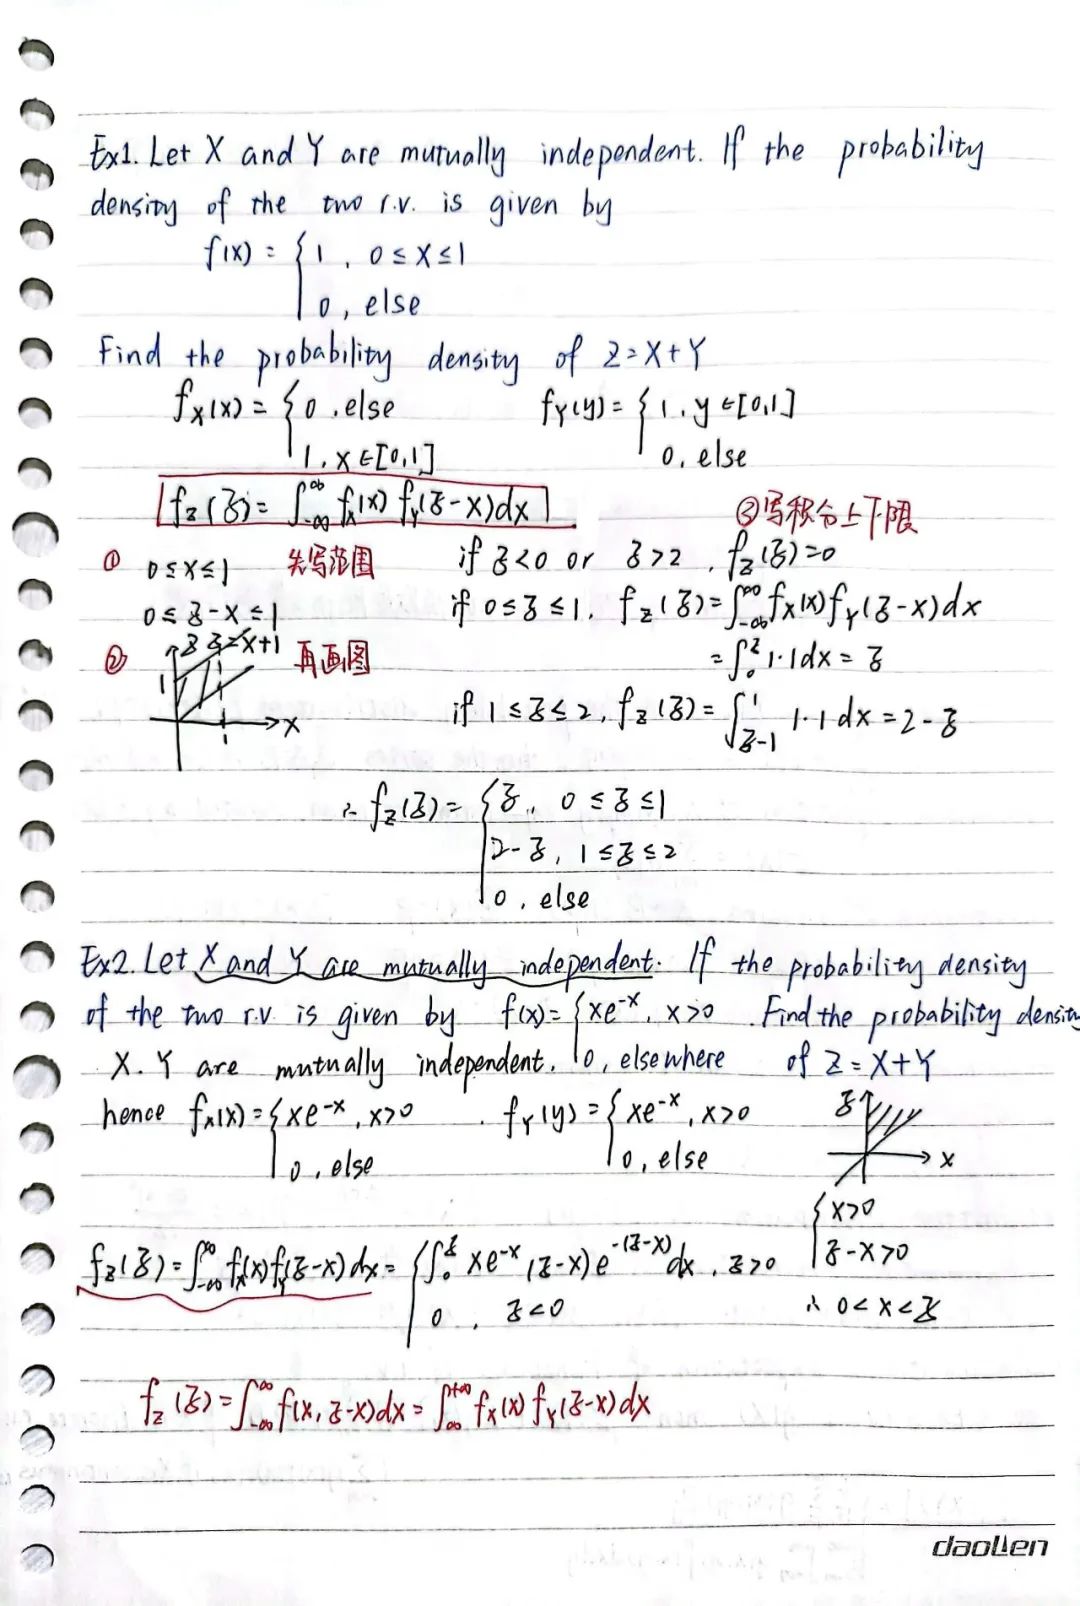 Ex1. Let X and Y are mutually independent. If the probability
density of the two r.v. is given by
f(x) = { 1, 0 ≤ x ≤ 1
0, else
Find the probability density of Z=X+Y
fX(x) = { 0, else fY(y) = { 1, y ∈ [0,1]
1, x ∈ [0,1] 0, else
fZ(z) = ∫_{-∞}^{∞} fX(x) fY(z-x)dx ③写积分上下限
① 0≤x≤1 先写范围 if z<0 or z>2, fZ(z)=0
0≤z-x≤1 if 0≤z≤1, fZ(z)=∫_{-∞}^{∞} fX(x) fY(z-x)dx
② z z=x+1 再画图 = ∫_0^z 1·1dx = z
1 x if 1≤z≤2, fZ(z) = ∫_{z-1}^1 1·1 dx = 2-z
∴ fZ(z) = { z, 0≤z≤1
2-z, 1≤z≤2
0, else
Ex2. Let X and Y are mutually independent. If the probability density
of the two r.v. is given by f(x)= { xe^{-x}, x>0 . Find the probability density
X. Y are mutually independent. 0, elsewhere of Z=X+Y
hence fX(x) = { xe^{-x}, x>0 . fY(y) = { xe^{-x}, x>0 z
0, else 0, else x
{ x>0
fZ(z) = ∫_{-∞}^{∞} fX(x) fY(z-x) dx = { ∫_0^z xe^{-x} (z-x) e^{-(z-x)} dx, z>0 z-x>0
0, z<0 ∴ 0<x<z
fZ(z) = ∫_{-∞}^{∞} f(x, z-x)dx = ∫_{∞}^{+∞} fX(x) fY(z-x) dx
daolen